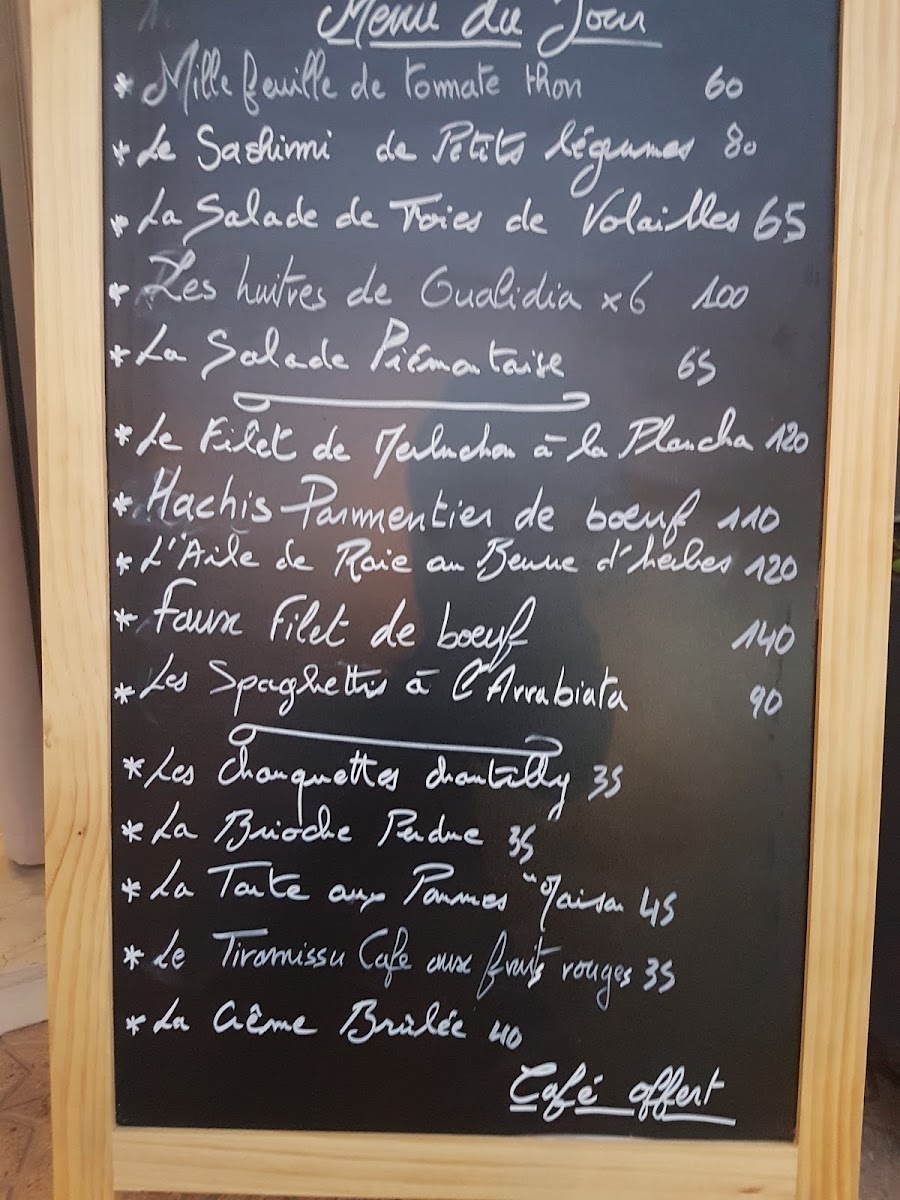 Menu du Jour
* Mille feuille de tommate thon 60
* Le Sashimi de Petits légumes 80
* La Salade de Foies de Volailles 65
* Les huitres de Oualidia x6 100
* La Salade Piémontaise 65
* Le Filet de Merluchon à la Plancha 120
* Hachis Parmentier de boeuf 110
* L'Aile de Raie au Beurre d'herbes 120
* Faux Filet de boeuf 140
* Les Spaghettis à l'Arrabiata 90
* Les Chouquettes chantilly 35
* La Brioche Perdue 35
* La Tarte aux Pommes "Maison 45
* Le Tiramissu Cafe aux fruits rouges 35
* La Crême Brûlée 40
Café offert